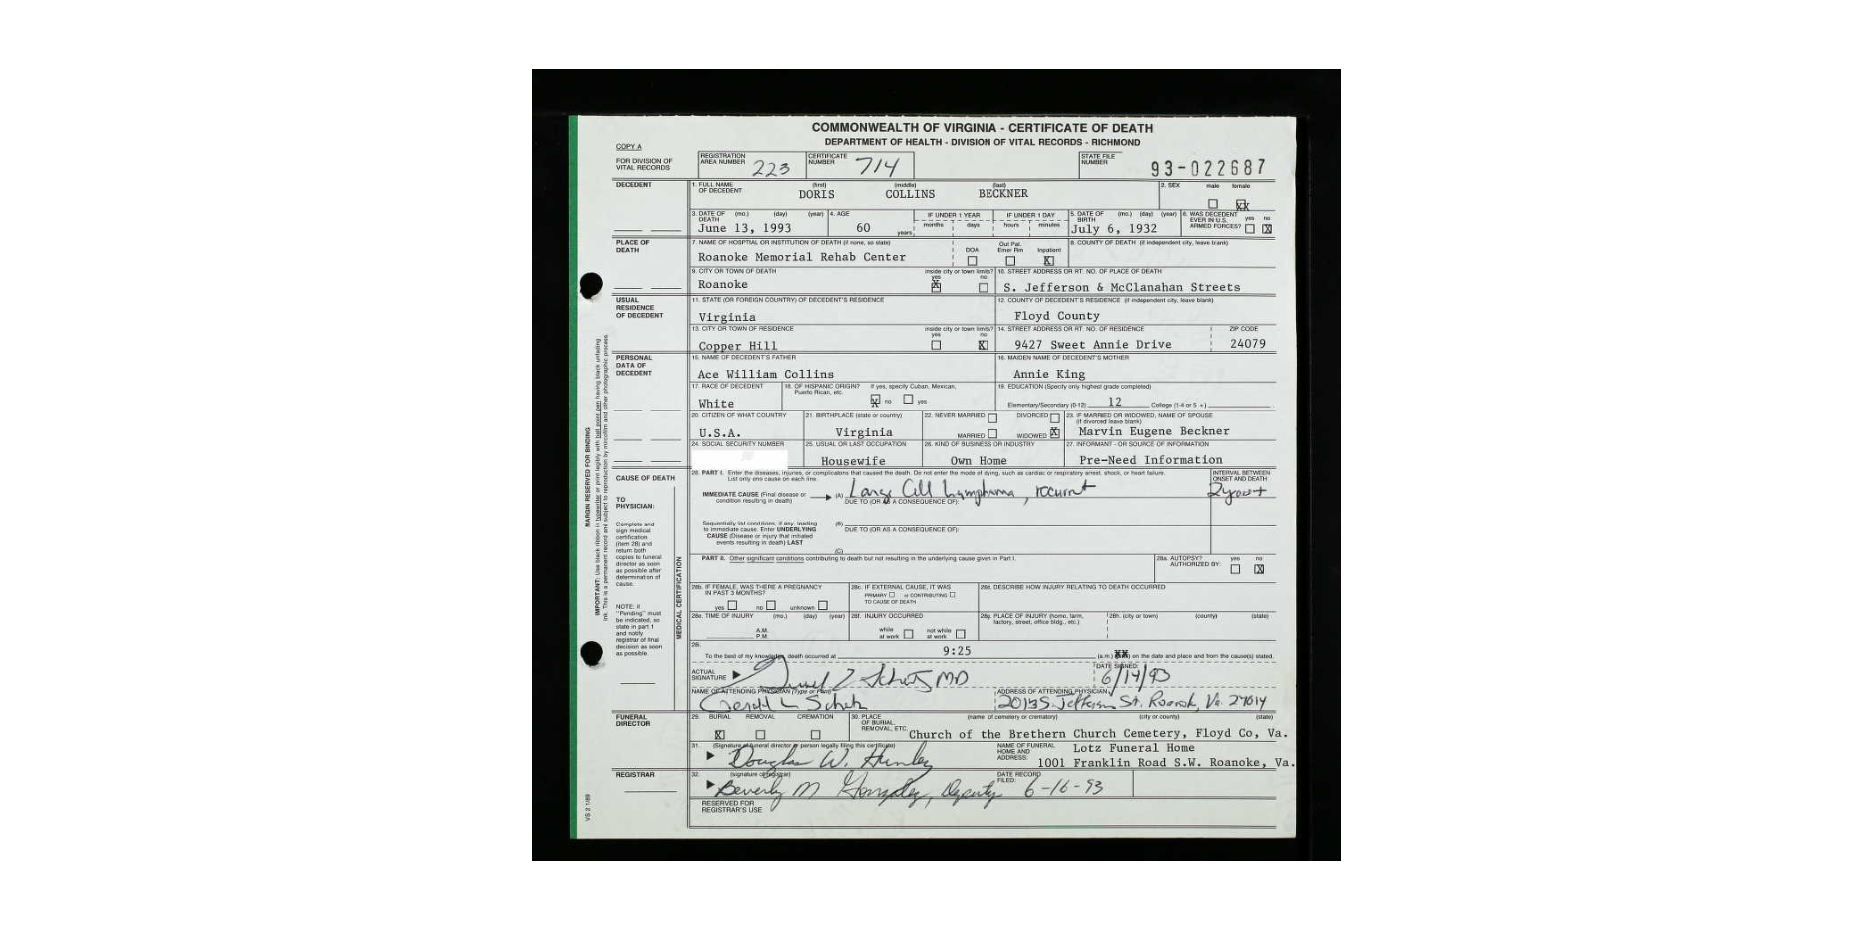 COMMONWEALTH OF VIRGINIA - CERTIFICATE OF DEATH
DEPARTMENT OF HEALTH - DIVISION OF VITAL RECORDS - RICHMOND
COPY A
FOR DIVISION OF VITAL RECORDS
REGISTRATION AREA NUMBER 223 CERTIFICATE NUMBER 714 STATE FILE NUMBER 93-022687
DECEDENT
1. FULL NAME OF DECEDENT (first) (middle) (last) 2. SEX male female
DORIS COLLINS BECKNER XX
3. DATE OF DEATH (mo.) (day) (year) 4. AGE IF UNDER 1 YEAR IF UNDER 1 DAY 5. DATE OF BIRTH (mo.) (day) (year) 6. WAS DECEDENT EVER IN U.S. ARMED FORCES? yes no
June 13, 1993 60 years months days hours minutes July 6, 1932 X
PLACE OF DEATH
7. NAME OF HOSPTIAL OR INSTITUTION OF DEATH (if none, so state) DOA Out Pat. Emer Rm Inpatient 8. COUNTY OF DEATH (if independent city, leave blank)
Roanoke Memorial Rehab Center X
9. CITY OR TOWN OF DEATH inside city or town limits? yes no 10. STREET ADDRESS OR RT. NO. OF PLACE OF DEATH
Roanoke X S. Jefferson & McClanahan Streets
USUAL RESIDENCE OF DECEDENT
11. STATE (OR FOREIGN COUNTRY) OF DECEDENT'S RESIDENCE 12. COUNTY OF DECEDENT'S RESIDENCE (if independent city, leave blank)
Virginia Floyd County
13. CITY OR TOWN OF RESIDENCE inside city or town limits? yes no 14. STREET ADDRESS OR RT. NO. OF RESIDENCE ZIP CODE
Copper Hill X 9427 Sweet Annie Drive 24079
PERSONAL DATA OF DECEDENT
15. NAME OF DECEDENT'S FATHER 16. MAIDEN NAME OF DECEDENT'S MOTHER
Ace William Collins Annie King
17. RACE OF DECEDENT 18. OF HISPANIC ORIGIN? If yes, specify Cuban, Mexican, Puerto Rican, etc. 19. EDUCATION (Specify only highest grade completed)
White X no yes Elementary/Secondary (0-12) 12 College (1-4 or 5 +)
20. CITIZEN OF WHAT COUNTRY 21. BIRTHPLACE (state or country) 22. NEVER MARRIED DIVORCED 23. IF MARRIED OR WIDOWED, NAME OF SPOUSE (if divorced leave blank)
U.S.A. Virginia MARRIED WIDOWED X Marvin Eugene Beckner
24. SOCIAL SECURITY NUMBER 25. USUAL OR LAST OCCUPATION 26. KIND OF BUSINESS OR INDUSTRY 27. INFORMANT - OR SOURCE OF INFORMATION
Housewife Own Home Pre-Need Information
CAUSE OF DEATH
28. PART I. Enter the diseases, injuries, or complications that caused the death. Do not enter the mode of dying, such as cardiac or respiratory arrest, shock, or heart failure. List only one cause on each line. INTERVAL BETWEEN ONSET AND DEATH
TO PHYSICIAN:
IMMEDIATE CAUSE (Final disease or condition resulting in death) (A) Large Cell Lymphoma, recurrent
DUE TO (OR AS A CONSEQUENCE OF):
Complete and sign medical certification (item 28) and return both copies to funeral director as soon as possible after determination of cause.
Sequentially list conditions, if any, leading to immediate cause. Enter UNDERLYING CAUSE (Disease or injury that initiated events resulting in death) LAST (B)
DUE TO (OR AS A CONSEQUENCE OF):
(C)
PART II. Other significant conditions contributing to death but not resulting in the underlying cause given in Part I. 28a. AUTOPSY? AUTHORIZED BY: yes no X
28b. IF FEMALE, WAS THERE A PREGNANCY IN PAST 3 MONTHS? yes no unknown 28c. IF EXTERNAL CAUSE, IT WAS PRIMARY or CONTRIBUTING TO CAUSE OF DEATH 28d. DESCRIBE HOW INJURY RELATING TO DEATH OCCURRED
NOTE: If "Pending" must be indicated, so state in part 1 and notify registrar of final decision as soon as possible.
28e. TIME OF INJURY (mo.) (day) (year) A.M. P.M. 28f. INJURY OCCURRED while at work not while at work 28g. PLACE OF INJURY (home, farm, factory, street, office bldg., etc.) 28h. (city or town) (county) (state)
MEDICAL CERTIFICATION
To the best of my knowledge, death occurred at 9:25 (a.m.) on the date and place and from the cause(s) stated.
ACTUAL SIGNATURE MD DATE SIGNED: 6/14/93
NAME OF ATTENDING PHYSICIAN (Type or Print) ADDRESS OF ATTENDING PHYSICIAN
2013 S. Jefferson St. Roanoke, Va. 24014
FUNERAL DIRECTOR
29. BURIAL REMOVAL CREMATION 30. PLACE OF BURIAL, REMOVAL, ETC. (name of cemetery or crematory) (city or county) (state)
X Church of the Brethern Church Cemetery, Floyd Co, Va.
31. (Signature of funeral director or person legally filing this certificate) NAME OF FUNERAL HOME AND ADDRESS: Lotz Funeral Home
Douglas W. 1001 Franklin Road S.W. Roanoke, Va.
REGISTRAR
32. (signature of registrar) DATE RECORD FILED:
Beverly M Gonzalez, Deputy 6-16-93
RESERVED FOR REGISTRAR'S USE
MARGIN RESERVED FOR BINDING
IMPORTANT: Use black ribbon in typewriter or print legibly with ball point pen having black unfading ink. This is a permanent record and subject to reproduction by microfilm and other photographic process.
VS 2 1/89